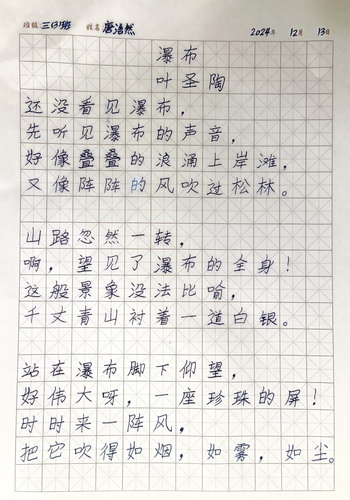 班级:三(3)班 姓名:唐浩然 2024年 12月 13日
瀑布
叶圣陶
还没看见瀑布，
先听见瀑布的声音，
好像叠叠的浪涌上岸滩，
又像阵阵的风吹过松林。
山路忽然一转，
啊，望见了瀑布的全身！
这般景象没法比喻，
千丈青山衬着一道白银。
站在瀑布脚下仰望，
好伟大呀，一座珍珠的屏！
时时来一阵风，
把它吹得如烟，如雾，如尘。